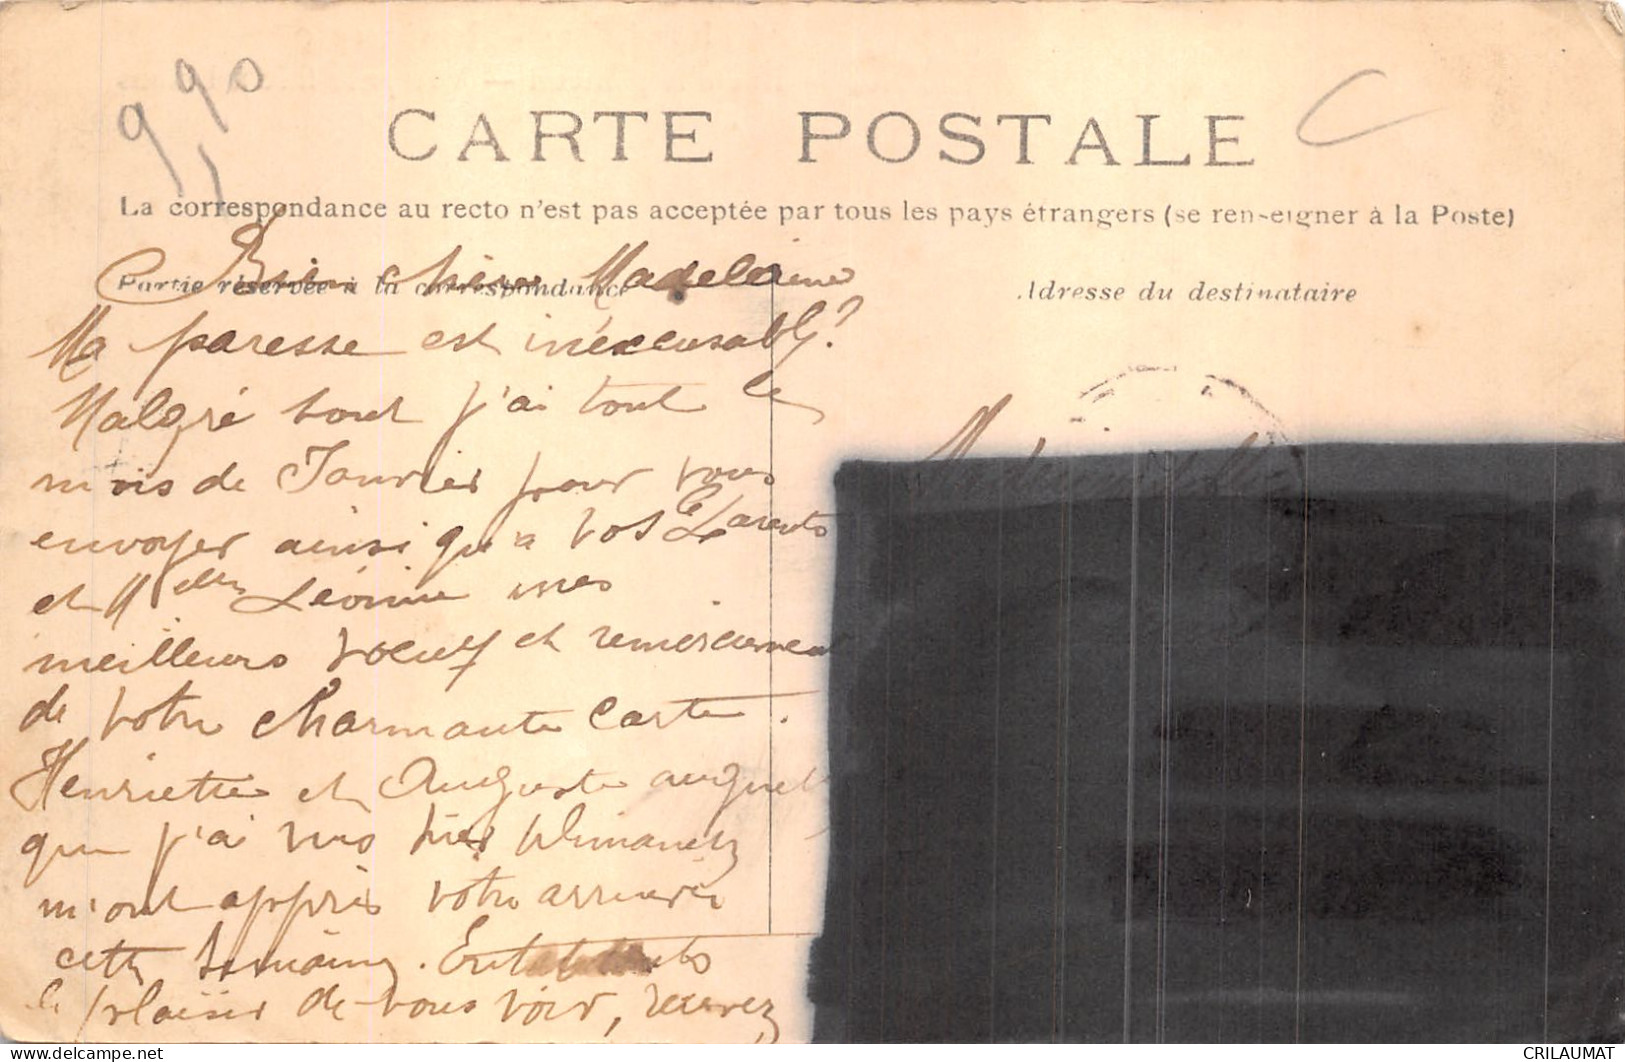 9,90
C
CARTE POSTALE
La correspondance au recto n'est pas acceptée par tous les pays étrangers (se renseigner à la Poste)
Partie réservée à la correspondance
Adresse du destinataire
Bien chère Madeleine
Ma paresse est inéxcusable?
Malgré tout j'ai tout le
mois de Janvier pour vous
envoyer ainsi qu'a vos Parents
et Melle Léonie mes
meilleurs voeux et remerciement
de votre charmante carte.
Henriette et Auguste auquel
que j'ai vus hier Dimanche
m'ont appris votre arrivée
cette semaine.
le plaisir de vous voir, recevez
Mademoiselle
CRILAUMAT